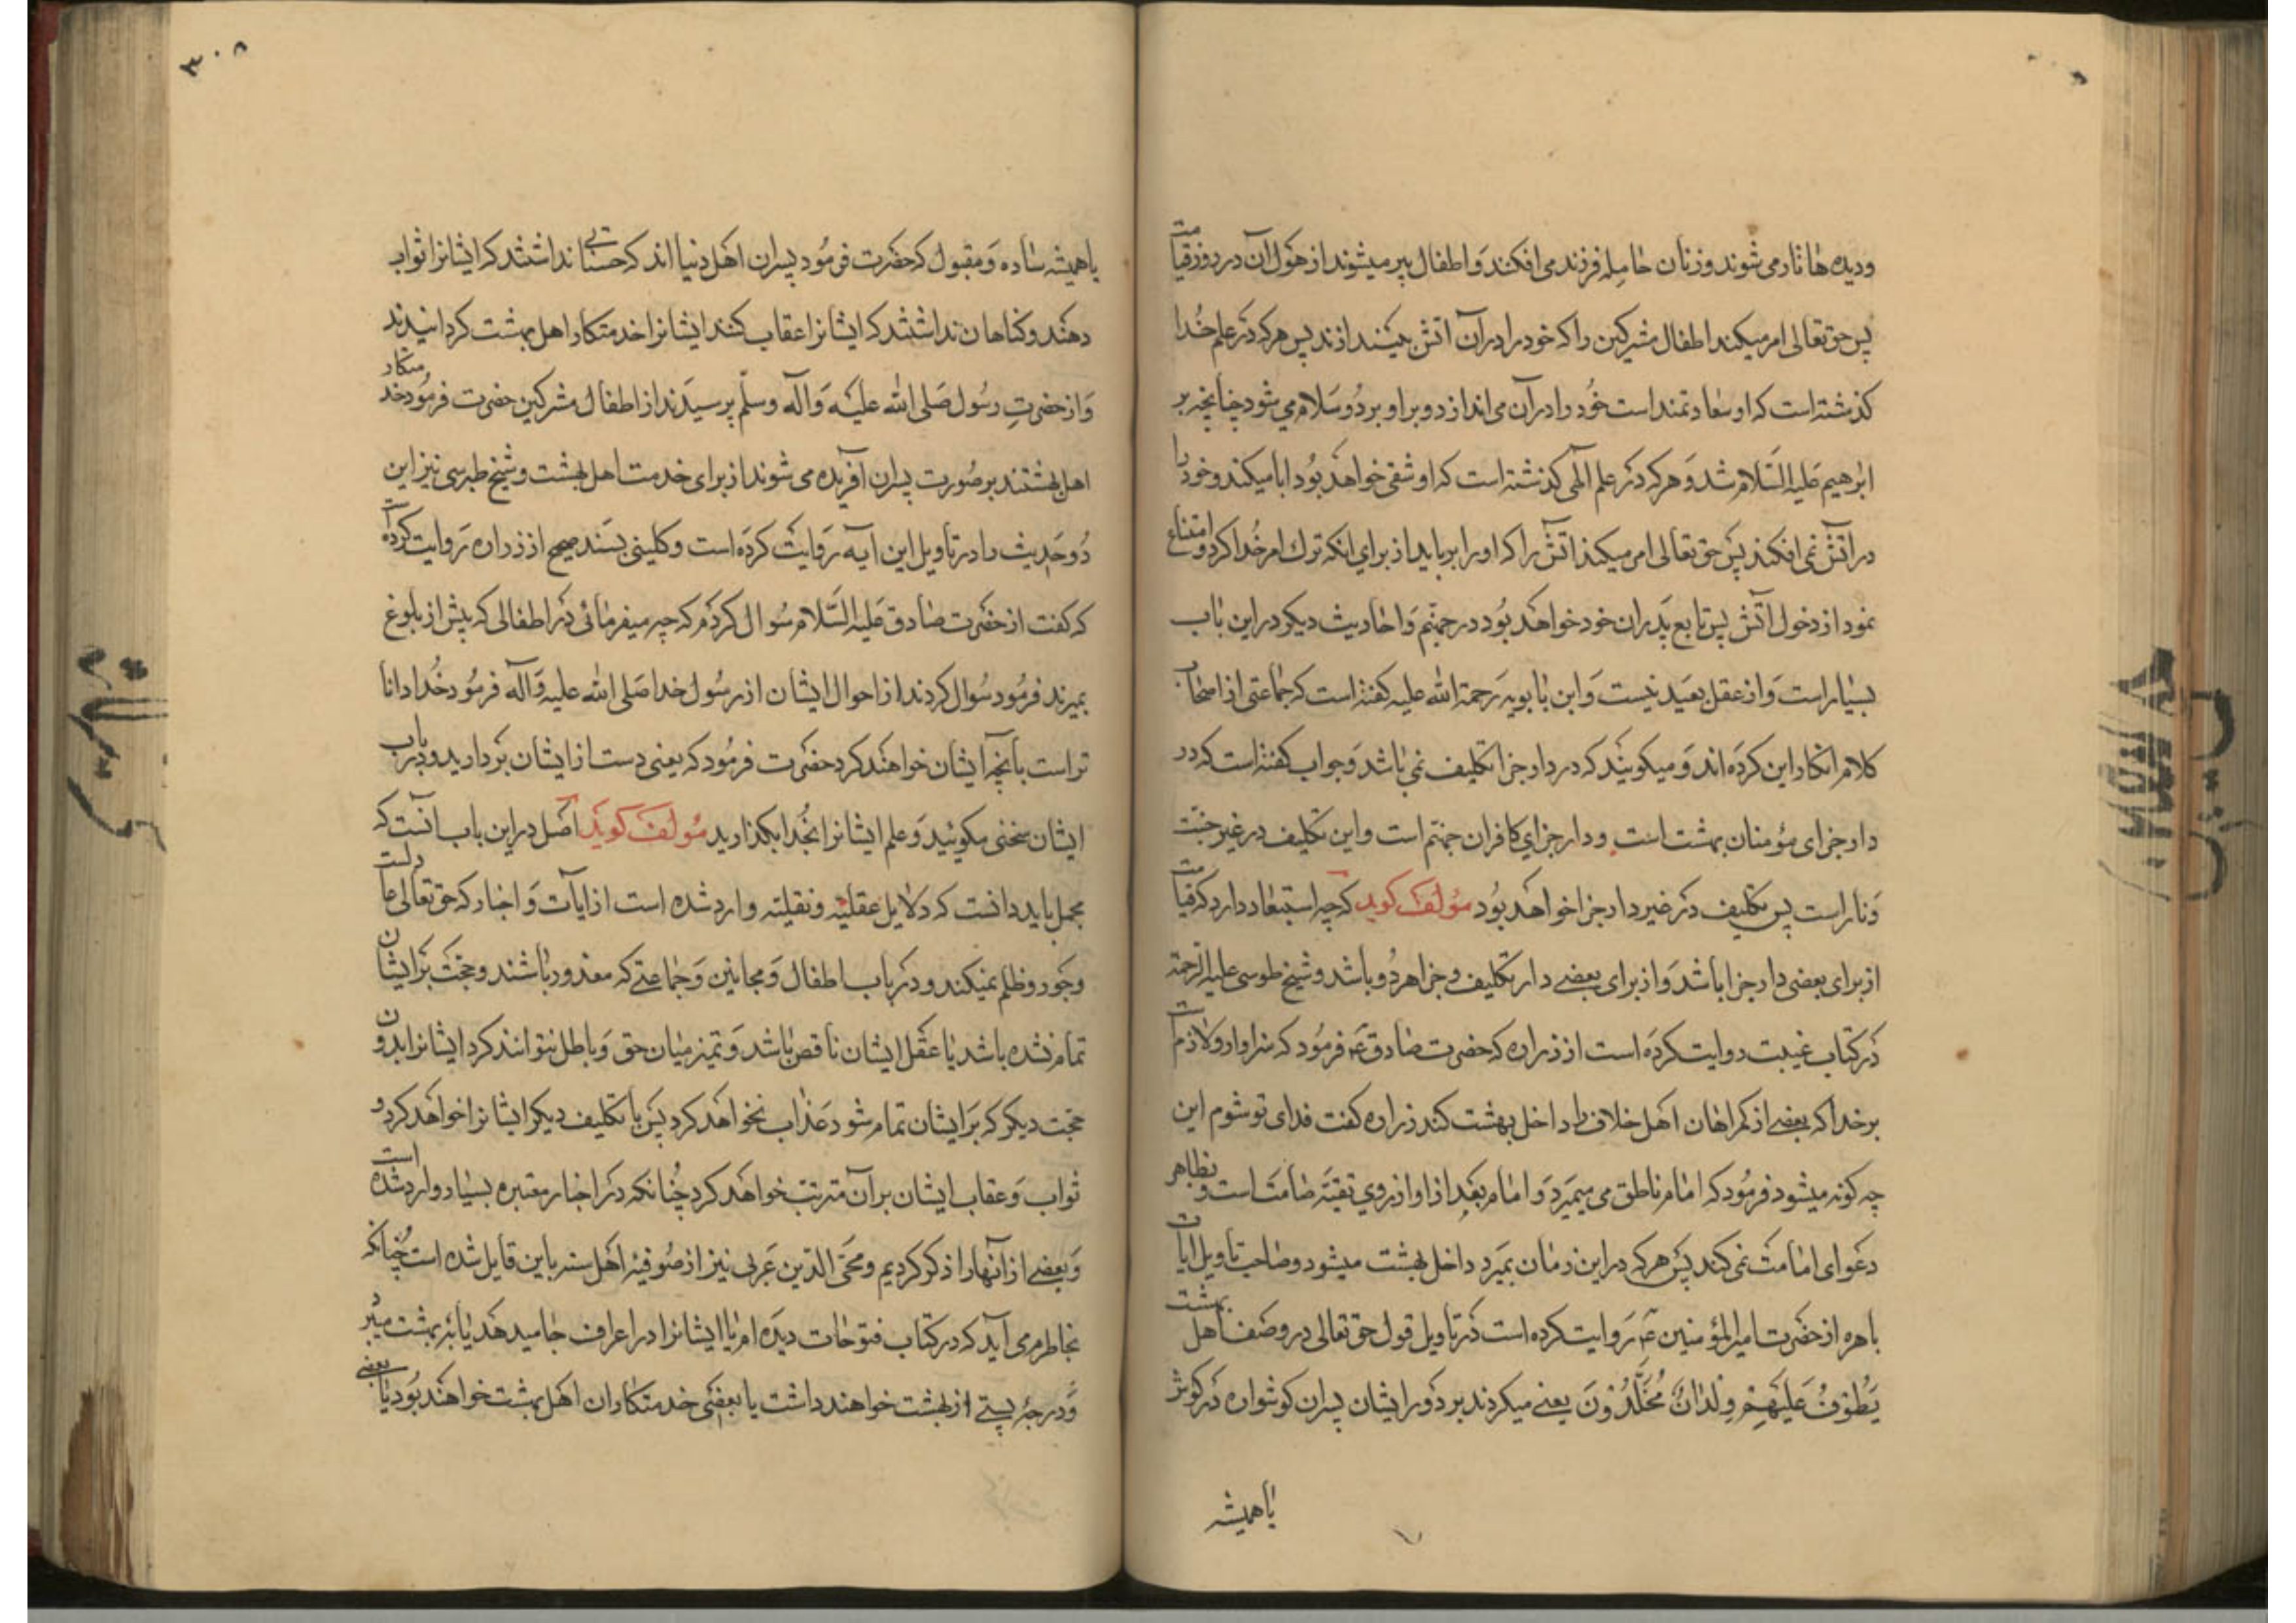 ودیده ها تار می شوند وزنان حامله فرزند می افکنند و اطفال پیر میشوند از هول آن در روز قیامت
پس حق تعالی امر میکند اطفال مشرکین را که خود را در آن آتش بیندازند پس هر که در علم خدا
کذشته است که او سعادتمند است خود را در آن می اندازد و بر او برد و سلام می شود چنانچه بر
ابرهیم علیه السلام شد و هر که در علم الهی کذشته است که او شقی خواهد بود ابا میکند و خود را
در آتش نمی افکند پس حق تعالی امر میکند آتش را که او را برباید از برای انکه ترک امر خدا کرد و امتناع
نمود از دخول آتش پس تابع پدران خود خواهد بود در جهنم و احادیث دیکر در این باب
بسیار است و از عقل بعید نیست و ابن بابویه رحمة الله علیه کفته است که جماعتی از اصحاب
کلام انکار این کرده اند و میکویند که در دار جزا تکلیف نمی باشد و جواب کفته است که در
دار جزای مؤمنان بهشت است و دار جزای کافران جهنم است و این تکلیف در غیر جنت
و نار است پس تکلیف در غیر دار جزا خواهد بود مؤلف کوید که چه استبعاد دارد که قیامت
از برای بعضی دار جزا باشد و از برای بعضی دار تکلیف و جزا هر دو باشد و شیخ طوسی علیه الرحمة
در کتاب غیبت روایت کرده است از زراره که حضرت صادق ع فرمود که سزاوار و لازم است
بر خدا که بعضی از کمراهان اهل خلاف را داخل بهشت کند زراره کفت فدای تو شوم این
چه کونه میشود فرمود که امام ناطق می میرد و امام بعد از او از روی تقیه صامت است و بظاهر
دعوای امامت نمی کند پس هر که در این زمان بمیرد داخل بهشت میشود و صاحب تاویل الآیات
باهره از حضرت امیر المؤمنین ع روایت کرده است در تاویل قول حق تعالی در وصف اهل بهشت
یَطُوفُ عَلَیْهِمْ وِلْدانٌ مُخَلَّدُونَ یعنی میکردند بر دور ایشان پسران کوشواره در کوش
یا همیشه
٣٠٨
یا همیشه ساده و مقبول که حضرت فرمود پسران اهل دنیا اند که حسناتی نداشتند که ایشانرا ثواب
دهند و کناهان نداشتند که ایشانرا عقاب کنند ایشانرا خدمتکار اهل بهشت کردانیدند
و از حضرت رسول صلی الله علیه وآله وسلم پرسیدند از اطفال مشرکین حضرت فرمود خدمتکار
اهل بهشتند بر صورت پسران آفریده می شوند از برای خدمت اهل بهشت و شیخ طبرسی نیز این
دو حدیث را در تاویل این آیه روایت کرده است و کلینی بسند صحیح از زراره روایت کرده است
که کفت از حضرت صادق علیه السلام سوال کردم که چه میفرمائی در اطفالی که پیش از بلوغ
بمیرند فرمود سوال کردند از احوال ایشان از رسول خدا صلی الله علیه وآله فرمود خدا دانا
تر است بآنچه ایشان خواهند کرد حضرت فرمود که یعنی دست از ایشان بردارید و در باب
ایشان سخنی مکوئید و علم ایشانرا بخدا بکذارید مؤلف کوید اصل در این باب آنست که
مجمل باید دانست که دلایل عقلیه و نقلیه وارد شده است از آیات و اخبار که حق تعالی عادلست
و جور و ظلم نمیکند و در باب اطفال و مجانین و جماعتی که معذور باشند و حجت بر ایشان
تمام نشده باشد یا عقل ایشان ناقص باشد و تمیز میان حق و باطل نتوانند کرد ایشانرا بدون
حجت دیکر که بر ایشان تمام شود عذاب نخواهد کرد پس یا تکلیف دیکر ایشانرا خواهد کرد و
ثواب و عقاب ایشان بر آن مترتب خواهد کرد چنانکه در اخبار معتبره بسیار وارد شده است
و بعضی از آنها را ذکر کردیم و محی الدین عربی نیز از صوفیه اهل سنه باین قایل شده است چنانکه
بخاطر می آید که در کتاب فتوحات دیده ام یا ایشانرا در اعراف جا میدهد یا به بهشت میبرد
و درجه پستی از بهشت خواهند داشت یا بعضی خدمتکاران اهل بهشت خواهند بود یا بعضی